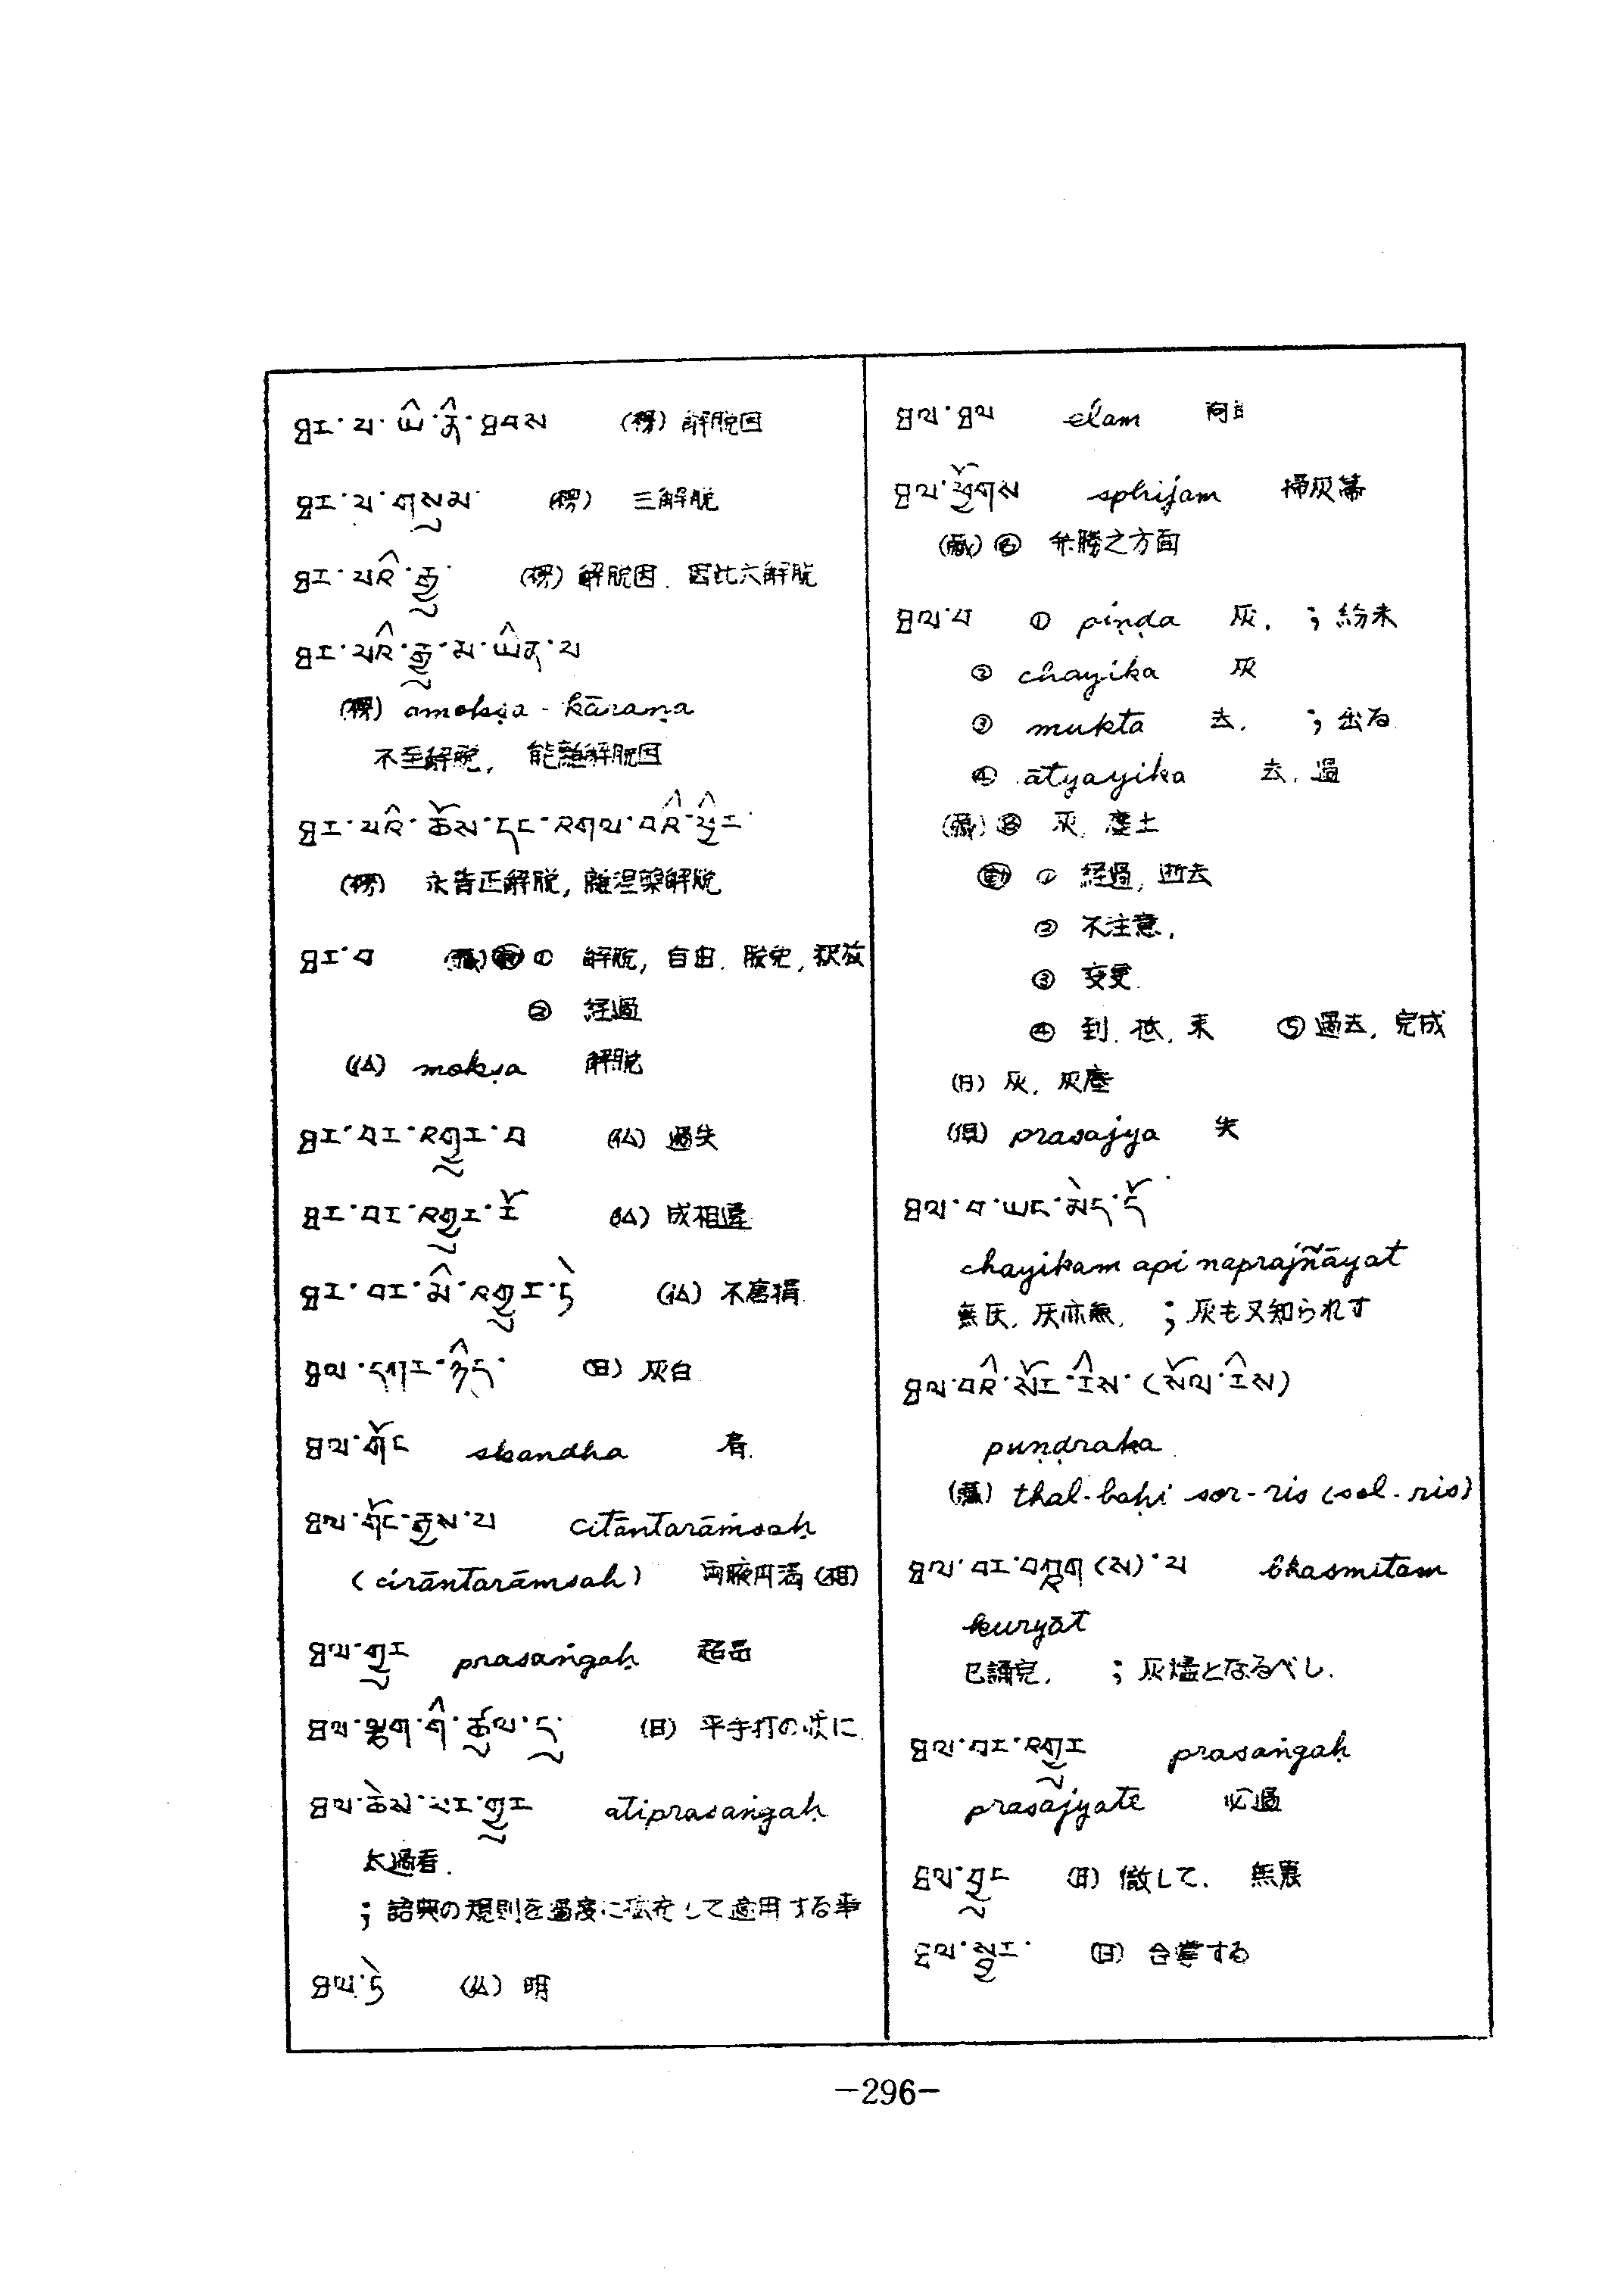 ཐར་པ་ཡི་ནི་ཐབས (楞) 解脱因
ཐར་པ་གསུམ་ (楞) 三解脱
ཐར་པའི་རྒྱུ་ (楞) 解脱因. 因此六解脱
ཐར་པའི་རྒྱུ་མ་ཡིན་པ
(楞) amokṣa - kāraṇa
不至解脱, 能離解脱因
ཐར་པའི་ཆོས་དང་འགལ་བའི་ཕྱིར་
(楞) 永昔正解脱, 離涅槃解脱
ཐར་བ (蔵) ① 解脱, 自由. 脱免, 釈放
② 経過
(仏) mokṣa 解脱
ཐར་བར་འགྱུར་བ (仏) 過失
ཐར་བར་འགྱུར་རོ (仏) 成相違
ཐར་བར་མི་འགྱུར་ཏེ (仏) 不唐捐
ཐལ་དཀར་ཉིད་ (日) 灰白
ཐལ་གོང skandha 肩.
ཐལ་གོང་རྒྱས་པ citāntarāṁsaḥ
(cirāntarāmsah) 両腋円満 (相)
ཐལ་གྱུར prasaṅgaḥ 超品
ཐལ་ལྕག་གི་ཚུལ་དུ་ (日) 平手打の状に
ཐལ་ཆེས་པར་གྱུར atiprasaṅgaḥ
太過看.
; 諸典の規則を過度に拡充して適用する事
ཐལ་ཏེ (仏) 明
ཐལ་ཐལ elam
ཐལ་ཕྱོགས sphijam 掃灰箒
(蔵) 名 弁勝之方面
ཐལ་བ ① piṇḍa 灰. ; 紛末
② chayika 灰
③ mukta 去. ; 出る
④ ātyayika 去, 過
(蔵) 名 灰, 塵土
動 ① 経過, 逝去
② 不注意,
③ 変更.
④ 到. 抵. 来 ⑤ 過去, 完成
(日) 灰, 灰塵
(倶) prasajya 失
ཐལ་བ་ཡང་མེད་དོ་
chayikam api naprajñāyat
無灰, 灰亦無, ; 灰も又知られず
ཐལ་བའི་སོར་རིས་(སོལ་རིས)
puṇḍraka
(蔵) thal-baḥi sor-ris (sol-ris)
ཐལ་བར་བཀྲག(ས)་པ bhasmitam
kuryāt
已誦完, ; 灰燼となるべし.
ཐལ་བར་འགྱུར prasaṅgaḥ
prasajyate 必過
ཐལ་བྱུང (日) 徹して. 無畏
ཐལ་སྦྱར་ (日) 合掌する
−296−